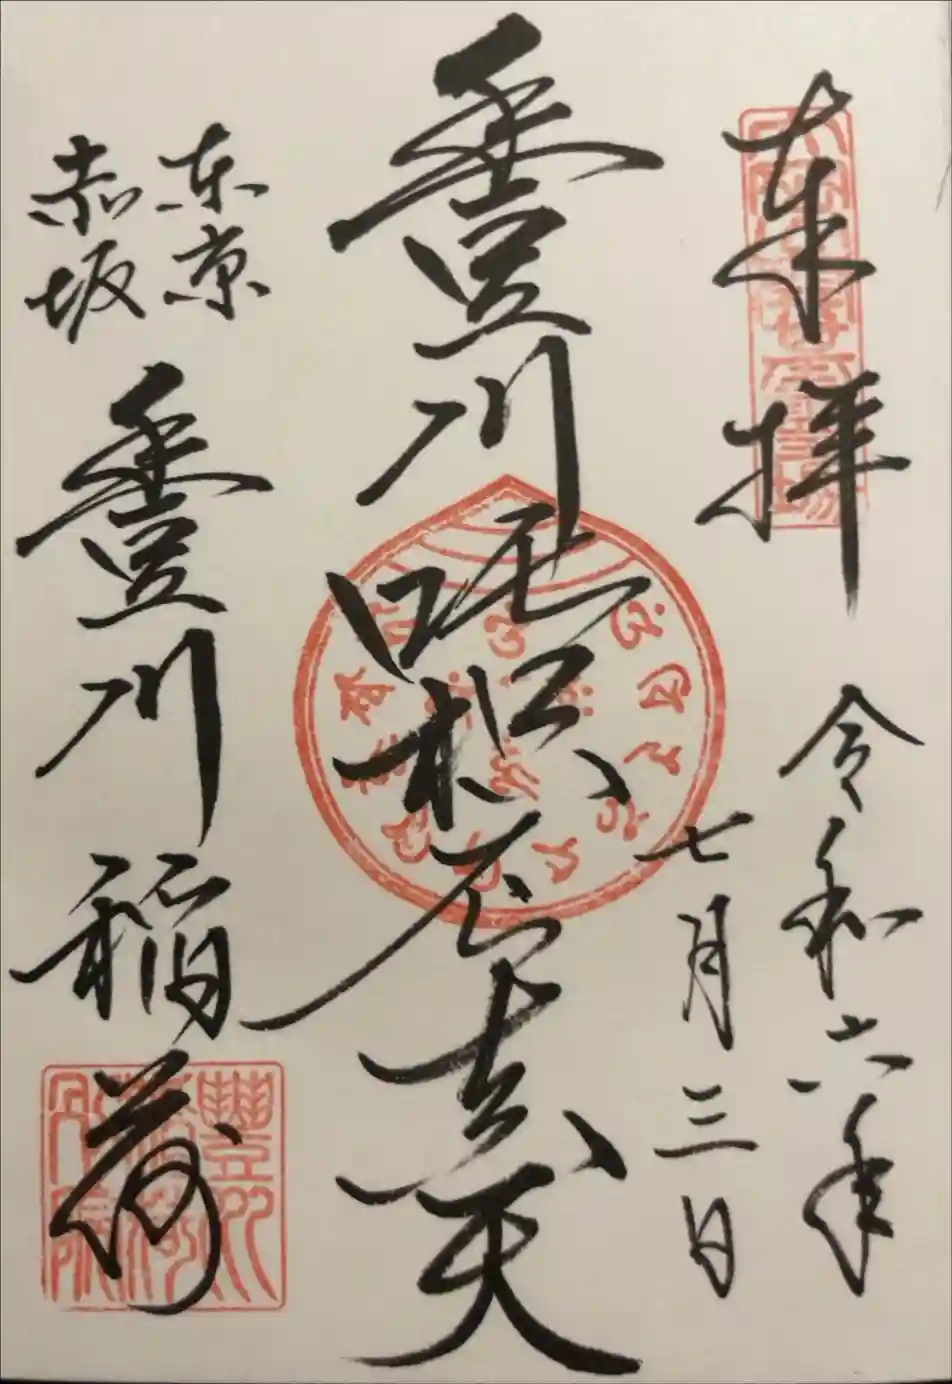 奉拝
令和六年
七月三日
豊川吒枳尼真天
東京
赤坂
豊川稲荷